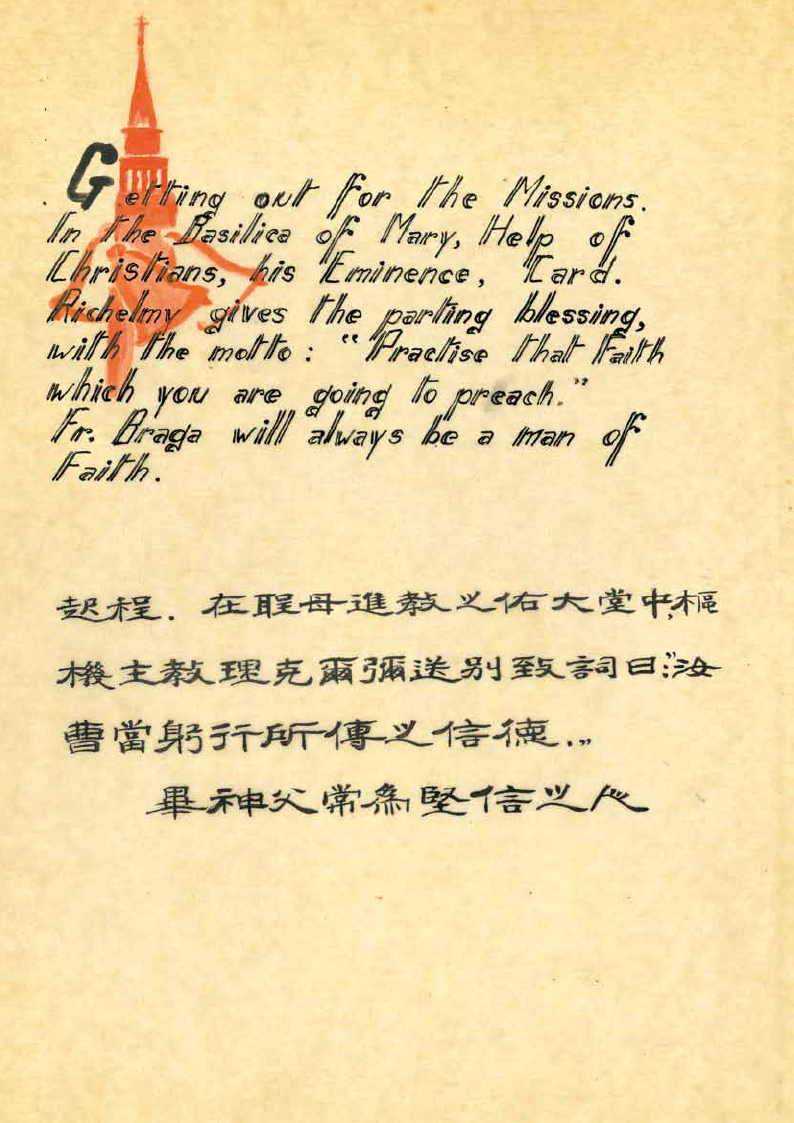 Getting out for the Missions.
In the Basilica of Mary, Help of
Christians, his Eminence, Card.
Richelmy gives the parting blessing,
with the motto : “Practise that Faith
which you are going to preach.”
Fr. Braga will always be a man of
Faith.
起程. 在聖母進教之佑大堂中,樞
機主教理克爾彌送别致詞曰:“汝
曹當躬行所傳之信德.”
畢神父常為堅信之人